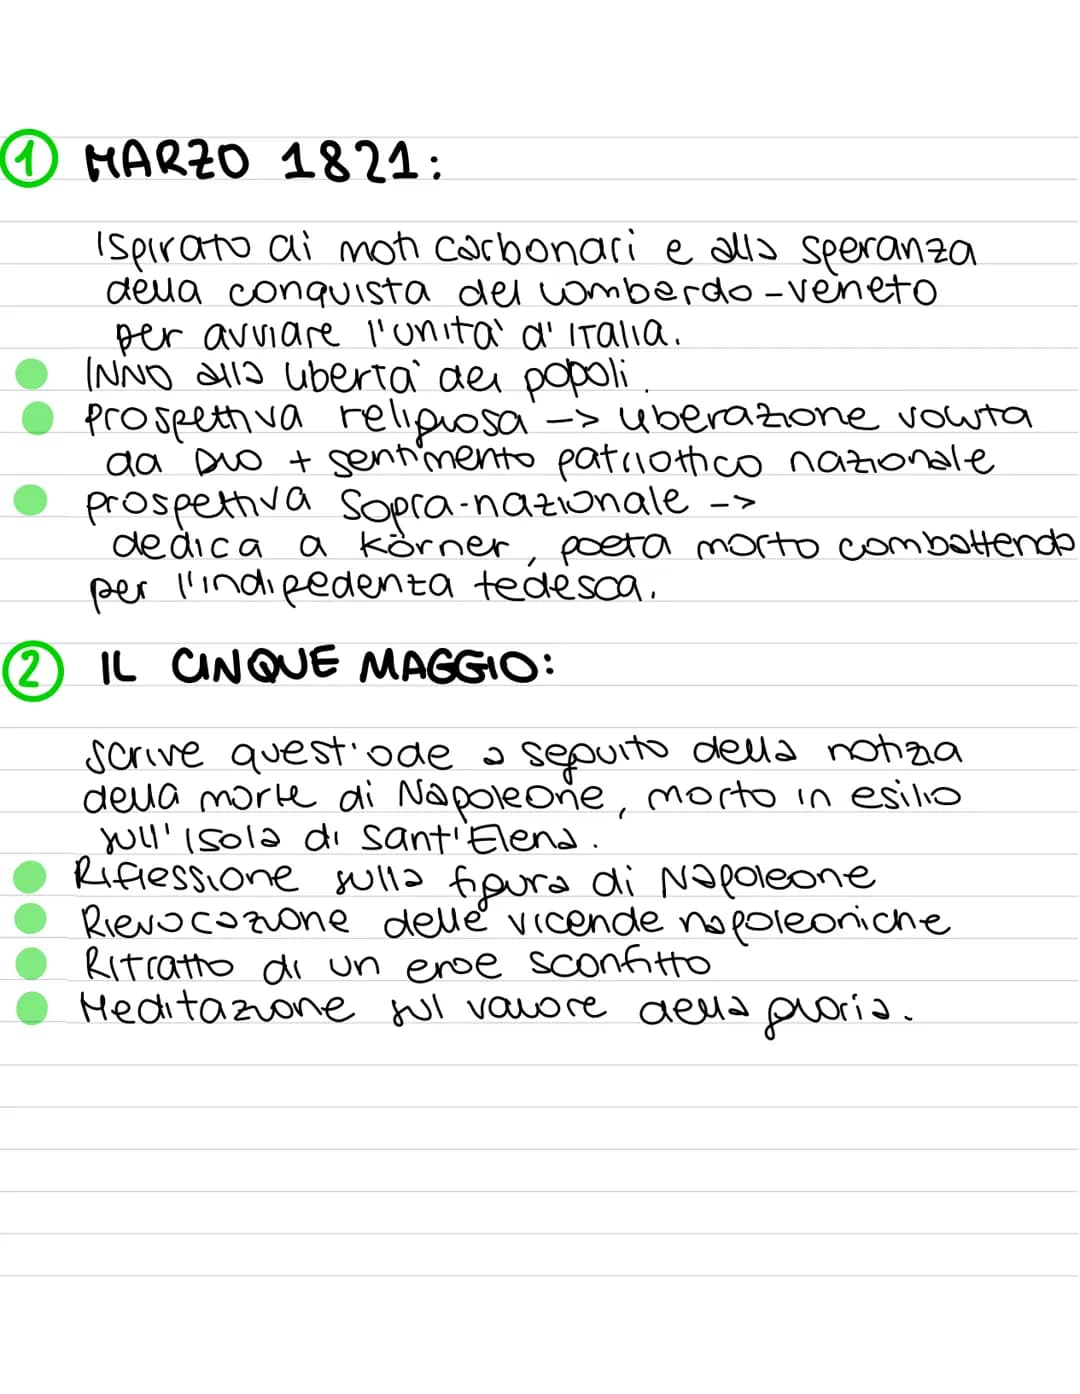 1 MARZO 1821:
Ispirato ai moti carbonari e alla speranza
della conquista del Lombardo-Veneto
per avviare l'unità d'ITALIA.
INNO alla libertà dei popoli.
Prospettiva religiosa -> liberazione voluta
da DIO + sentimento patriottico nazionale
prospettiva sopra-nazionale ->
dedica a Körner, poeta morto combattendo
per l'indipedenza tedesca.
2 IL CINQUE MAGGIO:
Scrive quest'ode a seguito della notizia
della morte di Napoleone, morto in esilio
sull'Isola di Sant'Elena.
Riflessione sulla figura di Napoleone
Rievocazione delle vicende napoleoniche
Ritratto di un eroe sconfitto
Meditazione sul valore della gloria.